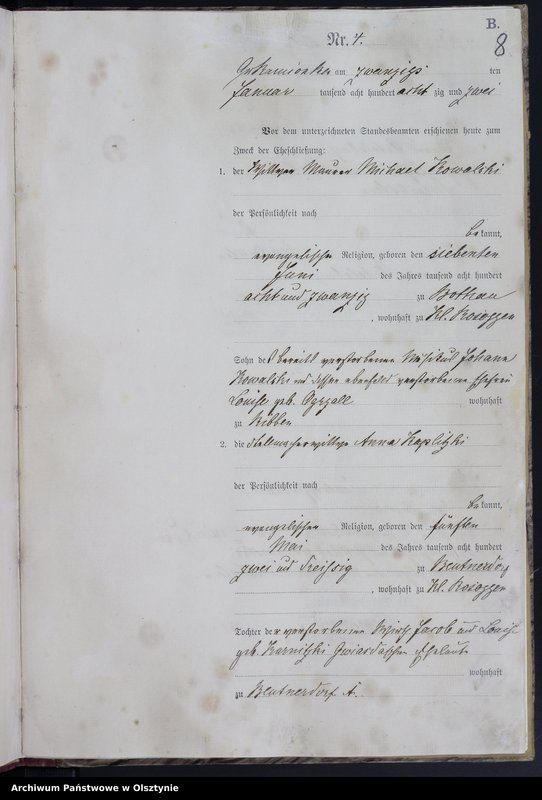 B.
8
Nr. 4.
Gr Kamionken am zwanzigs ten
Januar tausend acht hundert acht zig und zwei
Vor dem unterzeichneten Standesbeamten erschienen heute zum
Zweck der Eheschließung:
1. der Wittwer Maurer Michael Kowalski
der Persönlichkeit nach
be kannt,
evangelischer Religion, geboren den siebenten
Juni des Jahres tausend acht hundert
acht und zwanzig zu Bothau
, wohnhaft zu Kl. Rosoggen
Sohn des bereits verstorbenen Johann
Kowalski und dessen ebenfalls verstorbenen Ehefrau
Louise geb. wohnhaft
zu Ribben
2. die Stellmacherwittwe Anna Koplitzki
der Persönlichkeit nach
be kannt,
evangelischer Religion, geboren den fünften
Mai des Jahres tausend acht hundert
zwei und dreißig zu Beutnerdorf
, wohnhaft zu Kl. Rosoggen
Tochter der verstorbenen Wirth Jacob und Louise
geb. Eheleute
wohnhaft
zu Beutnerdorf
Archiwum Państwowe w Olsztynie